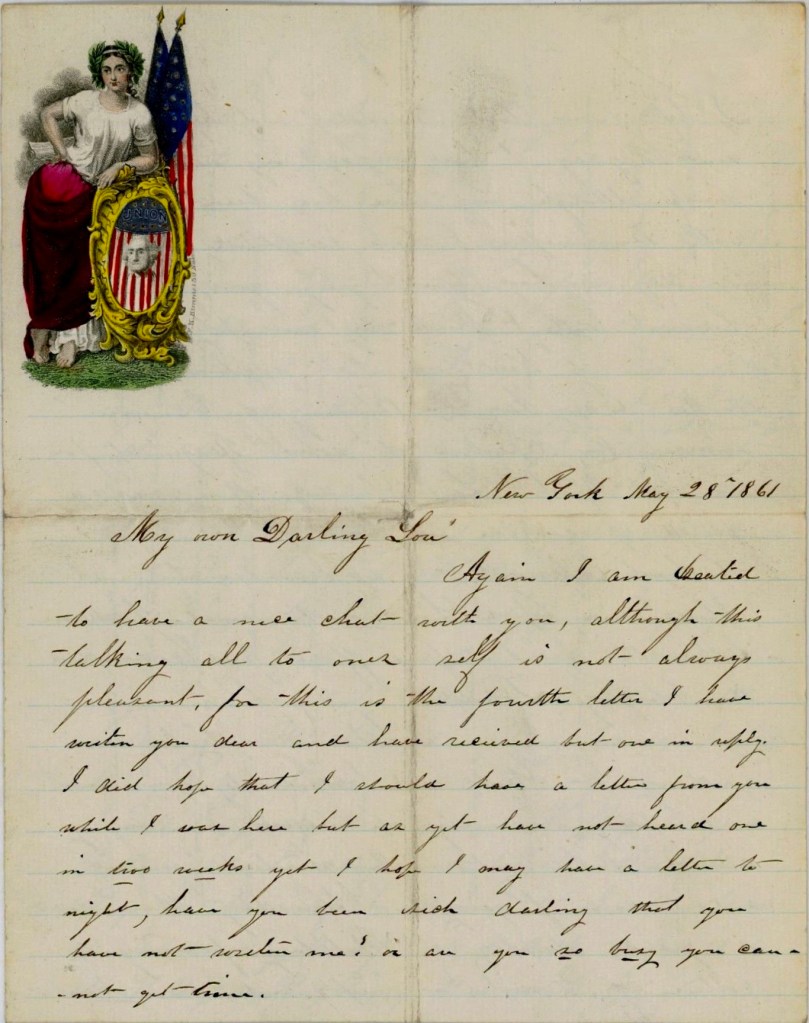 UNION
New York May 28" 1861
My own Darling Lou'
Again I am seated
to have a nice chat with you, although this
talking all to ones self is not always
pleasant, for this is the fourth letter I have
writen you dear and have recieved but one in reply.
I did hope that I should have a letter from you
while I was here but as yet have not heard one
in two weeks yet I hope I may have a letter to
night, have you been sick darling that you
have not writen me? or are you so busy you can-
-not get time.